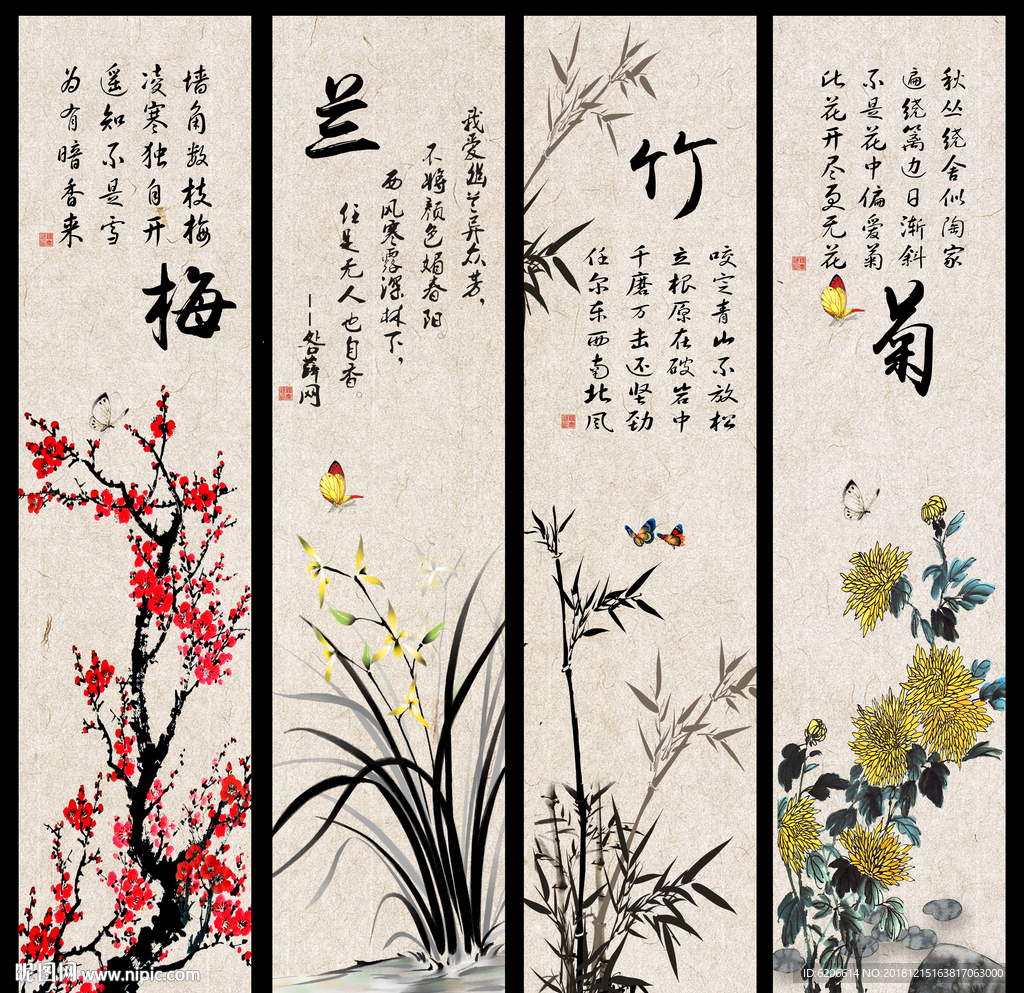 墙角数枝梅
凌寒独自开
遥知不是雪
为有暗香来
梅
兰
我爱幽兰异众芳，
不将颜色媚春阳。
西风寒露深林下，
任是无人也自香。
竹
咬定青山不放松
立根原在破岩中
千磨万击还坚劲
任尔东西南北风
秋丛绕舍似陶家
遍绕篱边日渐斜
不是花中偏爱菊
此花开尽更无花
菊
昵图网 www.nipic.com
ID:6206614 NO:20181215163817063000